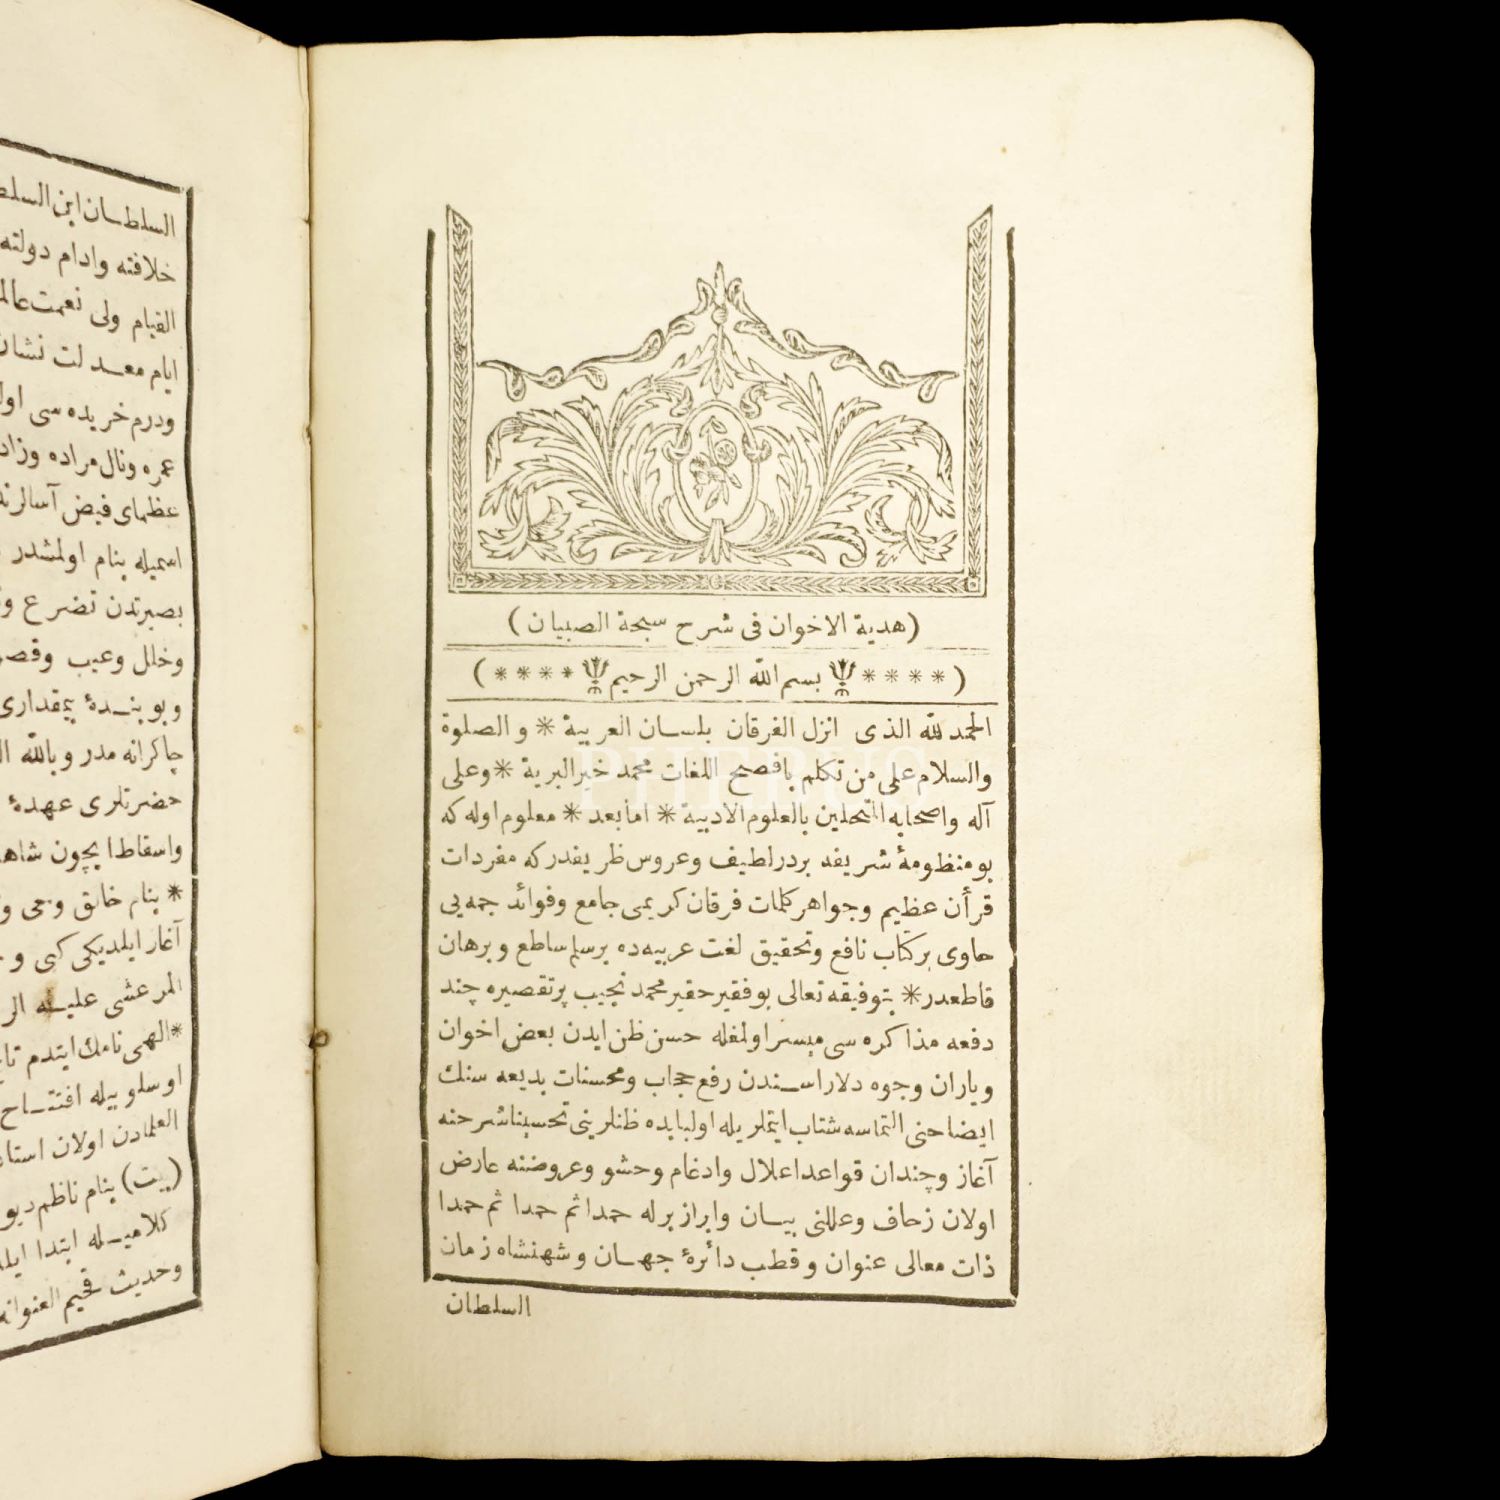 (هدية الاخوان فى شرح سبحة الصبيان)
(**** بسم الله الرحمن الرحيم ****)
الحمد لله الذى انزل الفرقان بلسان العربية * و الصلوة
والسلام على من تكلم بافصح اللغات محمد خير البرية * وعلى
آله واصحابه المتحلين بالعلوم الادبية * اما بعد * معلوم اوله كه
بو منظومۀ شريفه بر در لطيف و عروس ظريفدر كه مفردات
قرأن عظيم وجواهر كلمات فرقان كريمى جامع وفوائد جمه يى
حاوى بر كتاب نافع وتحقيق لغت عربيه ده بر سلم ساطع و برهان
قاطعدر * بتوفيقه تعالى بو فقير حقير محمد نجيب پر تقصيره چند
دفعه مذاكره سى ميسر اولمغله حسن ظن ايدن بعض اخوان
وياران وجوه دلاراسندن رفع حجاب ومحسنات بديعه سنك
ايضاحنى التماسه شتاب ايتملريله اولبابده ظنلرينى تحسينا شرحنه
آغاز وچندان قواعد اعلال وادغام وحشو وعروضنه عارض
اولان زحاف وعللنى بيان وابراز برله حمدا ثم حمدا ثم حمدا
ذات معالى عنوان وقطب دائرۀ جهان وشهنشاه زمان
السلطان
السلطان ابن السلط
خلافته وادام دولته
القيام ولى نعمت عالم
ايام معدلت نشان
ودرم خريده سى اول
عمره ونال مراده وزاد
عظماى فيض آسالرند
اسميله بنام اولمشدر
بصيرتدن تضرع و
وخلل وعيب وقصو
وبو بندۀ بيمقدارى
چاكرانه مدر وبالله ال
حضرتلرى عهدۀ
واسقاط ايچون شاه
* بنام خالق وحى و
آغاز ايلديكى كبى و
المرعشى عليه الر
* الهى نامك ايتدم تا
اوسلوبيله افتتاح
العلمادن اولان استا
(بيت) بنام ناظم ديو
كلاميله ابتدا ايل
وحديث فخيم العنوان